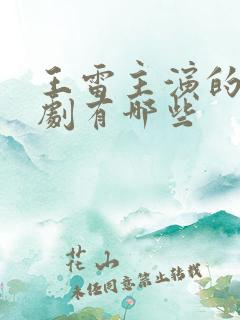 王雷主演的
劇有哪些
花山
未经同意禁止转载